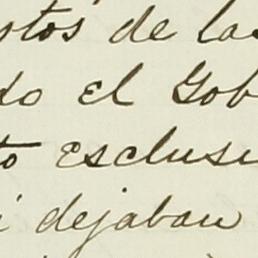 stos de las
do el Gob
to exclusi
i dejaban